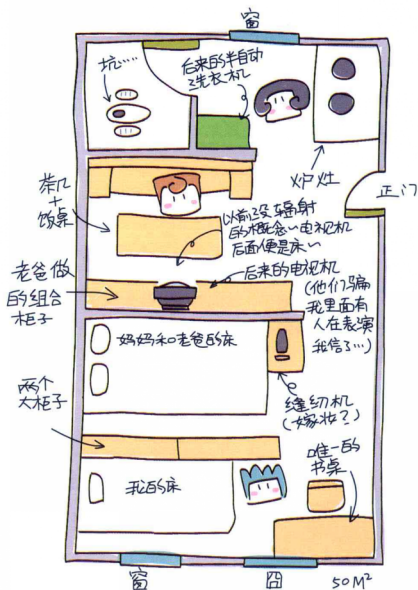 窗
坑……
后来的半自动
洗衣机
炉灶
正门
茶几
+
饭桌
以前没辐射
的概念~电视机
后面便是床~
老爸做
的组合
柜子
后来的电视机
(他们骗
我里面有
人在表演
我信了…)
妈妈和老爸的床
缝纫机
(嫁妆?)
两个
大柜子
唯一的
书桌
我的床
窗
囧
50M²